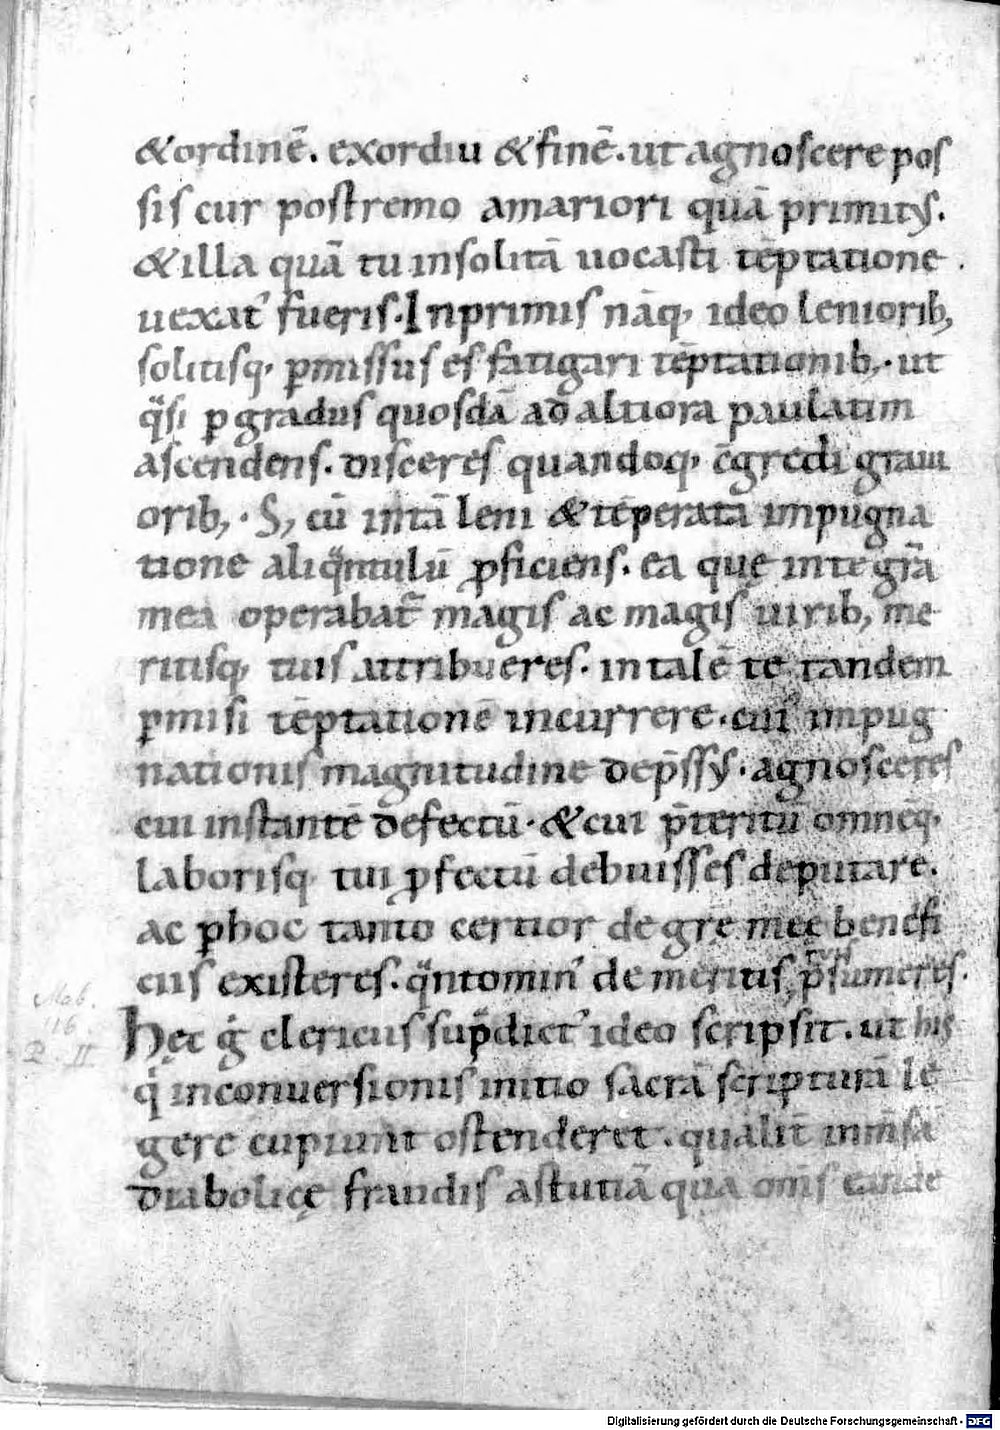 &ordinē. exordiu &finē. ut agnoscere pos
sis cur postremo amariori quā primitꝰ.
&illa quā tu insolitā uocasti tēptatione
uexatʼ fueris. Inprimis nāq; ideo leniorib;
solitisq; ꝑmissus es fatigari tēptationib;. ut
qͣsi ꝑ gradus quosdā ad altiora paulatim
ascendens. disceres quandoq; cgredi graui
orib;. S; cū intā leni &tēperatā impugna
tione aliqͣntulū ꝓficiens. ea quę inte grā
mea operabat̄ magis ac magis uirib; me
ritisq; tuis attribueres. in talē te tandem
ꝑmisi tēptationē incurrere. cuiʼ impug
nationis magnitudine dep̄ssꝰ. agnosceres
cui instantē defectū. &cui p̄teritū omnēq;
laborisq; tui ꝓfectū debuisses deputare.
ac ꝑhoc tanto certior de grę męę benefi
ciis existeres. qͣntominʼ de meritis p̄sumeres.
Mab.
116.
P. II
Hęc g̊ clericus sup̄dictʼ ideo scripsit. ut his
qͥ inconuersionis initio sacrā scripturā le
gere cupiunt ostenderet. qualit̄ inm̄sā
diabolicę fraudis astutiā qua om̄s
Digitalisierung gefördert durch die Deutsche Forschungsgemeinschaft - DFG